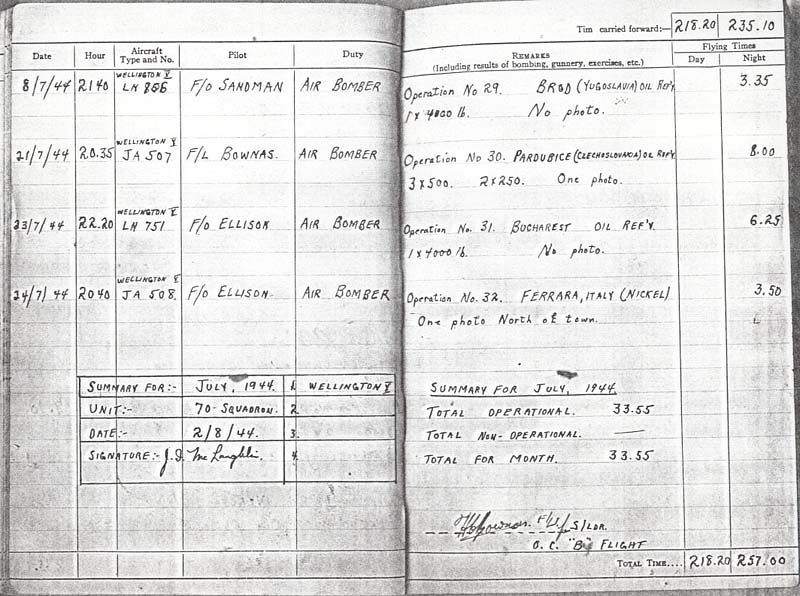 Tim carried forward:— 218.20 235.10
Date Hour Aircraft Type and No. Pilot Duty REMARKS (Including results of bombing, gunnery, exercises, etc.) Flying Times Day Night
WELLINGTON X
8/7/44 2140 LN 856 F/O SANDMAN AIR BOMBER Operation No 29. BROD (YUGOSLAVIA) OIL REF'Y 3.35
1 x 4000 lb. No photo.
WELLINGTON X
21/7/44 20.35 JA 507 F/L BOWNAS. AIR BOMBER Operation No 30. PARDUBICE (CZECHOSLOVAKIA) OIL REF'Y 8.00
3 x 500. 2 x 250. One photo.
WELLINGTON X
23/7/44 22.20 LN 751 F/O ELLISON AIR BOMBER Operation No. 31. BUCHAREST OIL REF'Y. 6.25
1 x 4000 lb. No photo.
WELLINGTON X
24/7/44 2040 JA 508. F/O ELLISON AIR BOMBER Operation No. 32. FERRARA, ITALY (NICKEL) 3.50
One photo North of town.
SUMMARY FOR:- JULY, 1944. 1. WELLINGTON X
UNIT:- 70 SQUADRON. 2.
DATE:- 2/8/44. 3.
SIGNATURE:- J.D. McLaughlin. 4.
SUMMARY FOR JULY, 1944.
TOTAL OPERATIONAL. 33.55
TOTAL NON-OPERATIONAL. —
TOTAL FOR MONTH. 33.55
F/L S/LDR.
O.C. "B" FLIGHT
TOTAL TIME.... 218.20 257.00